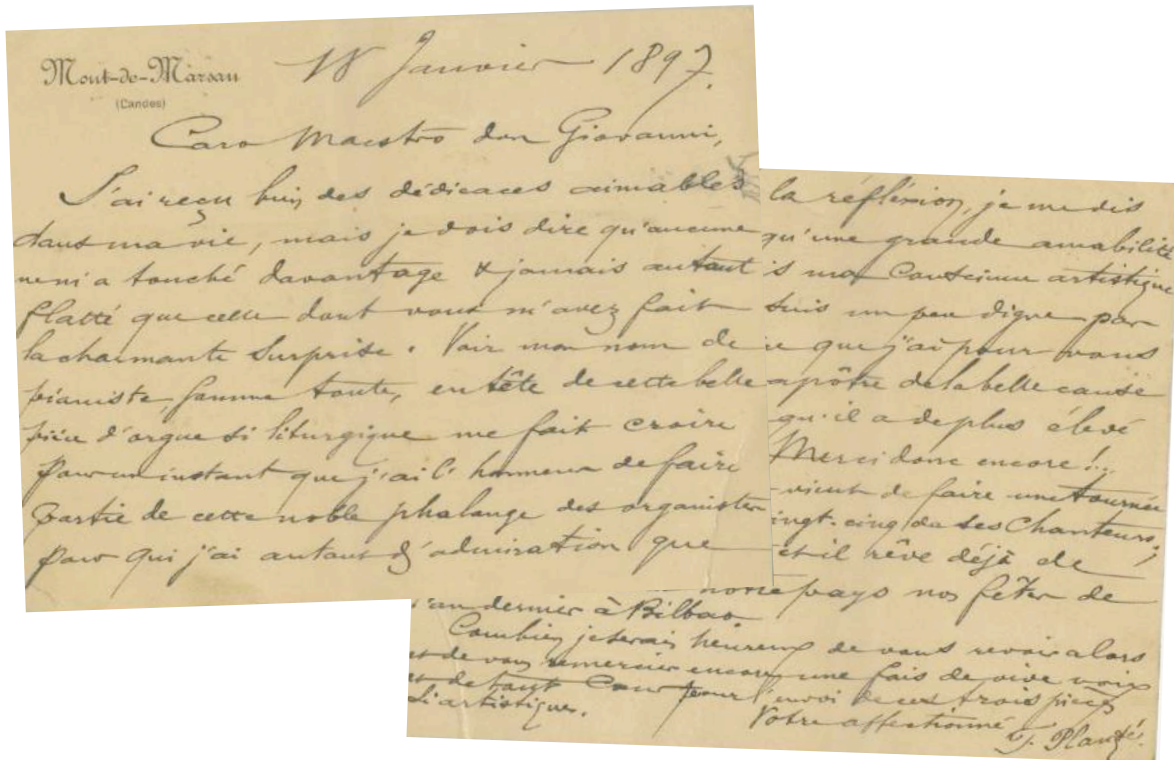 Mont-de-Marsan
(Landes)
18 Janvier 1897.
Caro Maestro don Giovanni,
J'ai reçu bien des dédicaces aimables
dans ma vie, mais je dois dire qu'aucune
ne m'a touché davantage & jamais autant
flatté que celle dont vous m'avez fait
la charmante surprise. Voir mon nom de
pianiste, en tête de cette belle
pièce d'orgue si liturgique me fait croire
pour un instant que j'ai l'honneur de faire
partie de cette noble phalange des organistes
pour qui j'ai autant d'admiration que
la réflexion, je me dis
qu'une grande amabilité
s ma conscience artistique
suis un peu digne par
ce que j'ai pour vous
apôtre de la belle cause
qu'il a de plus élevé
Merci donc encore!..
vient de faire une tournée
ingt-cinq de ses Chanteurs;
et il rêve déjà de
notre pays nos fêtes de
l'an dernier à Bilbao
Combien je serais heureux de vous revoir alors
et de vous remercier encore une fois de vive voix
et de tout cœur pour l'envoi de ces trois pièces
si artistiques.
Votre affectionné
F. Planté.